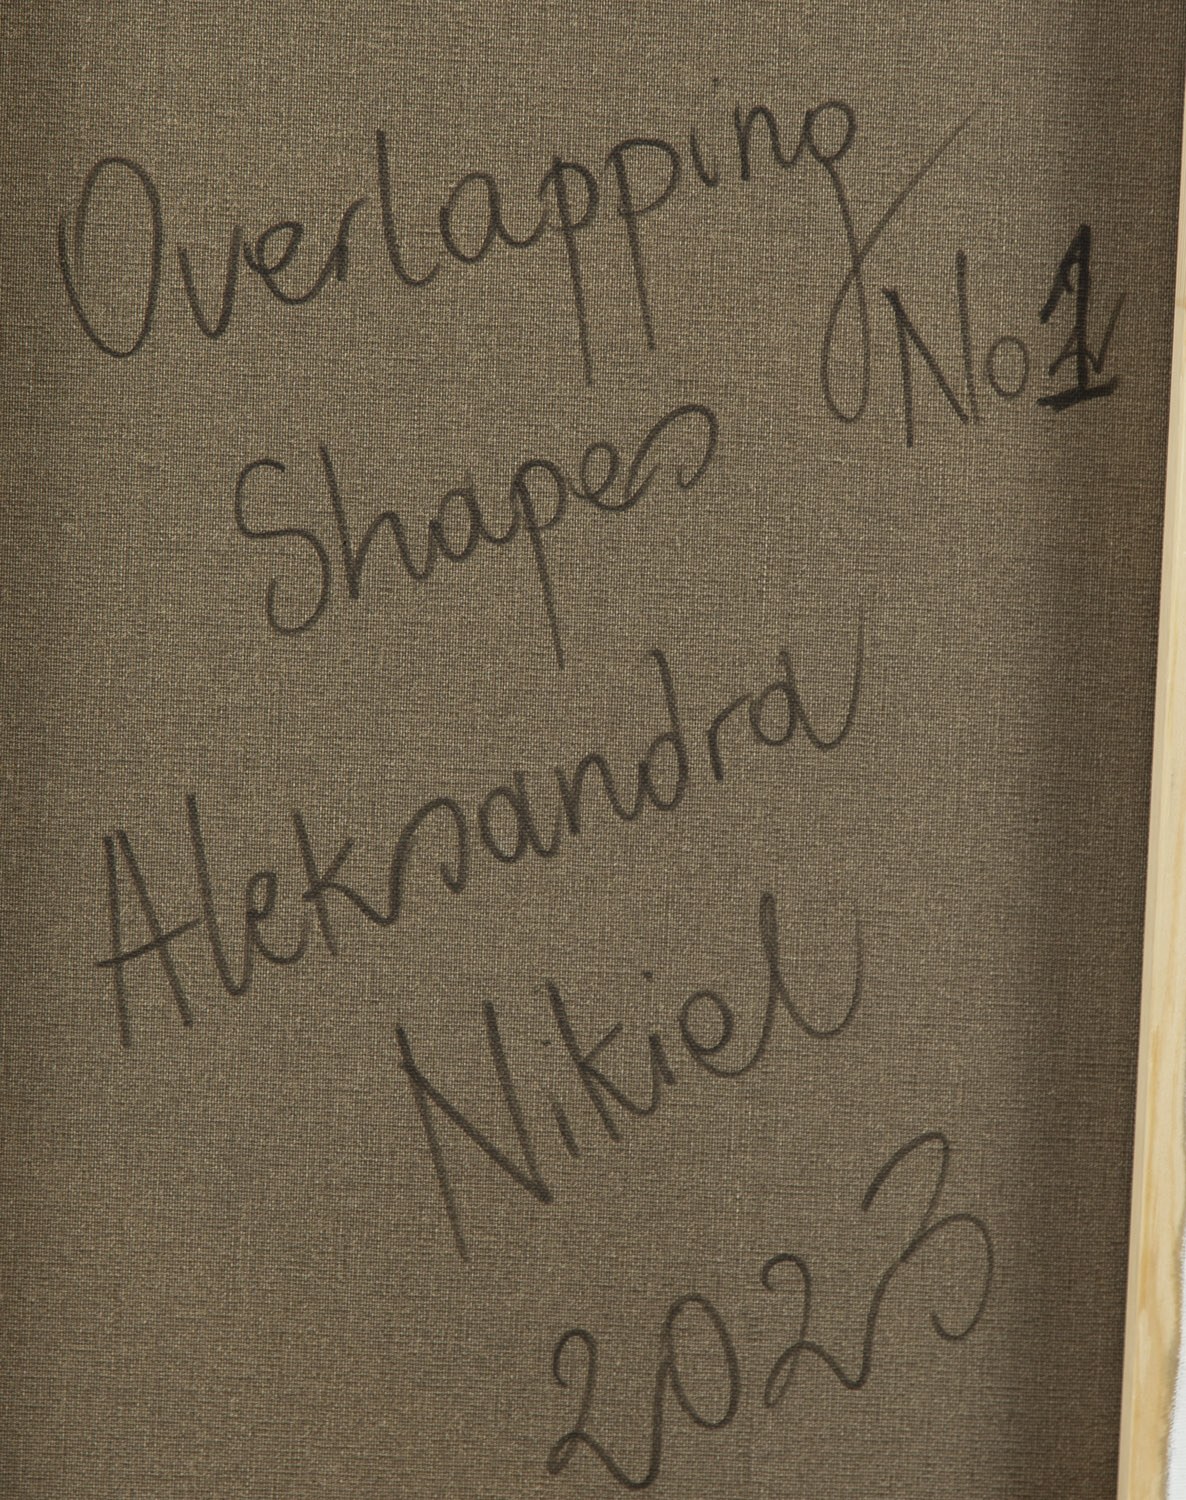 Overlapping No 1
Shapes
Aleksandra
Nikiel
2023